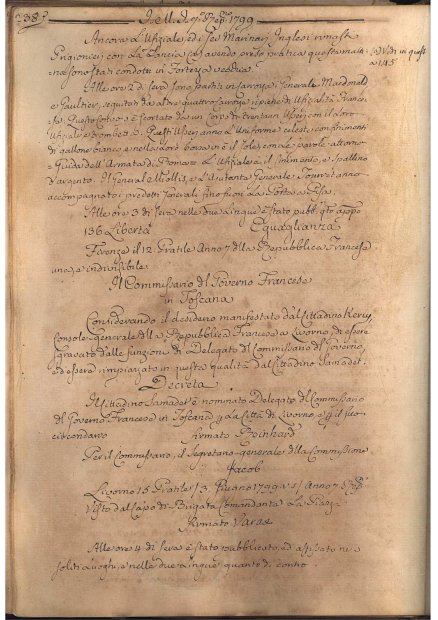 238
Ancora L'Ufiziale, ed i Sei Marinarj Inglesi rimasti
Prigionieri con La Lancia, ed avendo preso pratica questa mati-
na sono stati condotti in Fortezza vecchia.
a Vedi in quest
a 145
Alle ore 2 di sera sono partiti in Carrozza i Generali Macdonald
e Gaultier, seguitati da altre quattro Carrozze ripiene di Ufizialità France-
se. Questo Corteo è scortato da un Corpo di trenta Usseri, con il loro
Ufiziale, e Trombetta. Questi Usseri anno L'Uniforme celeste, con finimenti
di gallone bianco, e nelle loro borse vi è il Sole, con Le parole attorno
Guida dell'Armata di Roma. L'Ufiziale à il finimento, e spallino
d'argento. Il General Miollis, e L'Ajutante Generale Jouvet anno
accompagnato i predetti Generali fino fuori La Porta a Pisa.
Alle ore 3 di sera nelle due Lingue è stato pubb.
136 Libertà Eguaglianza
Firenze il 12 Pratile Anno 7 della Repubblica Francese
una, e indivisibile.
Il Commissario del Governo Francese
in Toscana
Considerando il desiderio manifestato dal Cittadino
Console generale della Repubblica Francese a Livorno di essere
sgravato dalle funzioni di Delegato del Commissario del Governo,
ed essere rimpiazzato in questa qualità dal Cittadino Lamadet.
Decreta
Il Cittadino Lamadet è nominato Delegato del Commissario
del Governo Francese in Toscana p La Città di Livorno, e p il suo
circondario
Firmato Reinhard
Per il Commissario, il Segretario generale della Commissione
Jacob
Livorno 15 Pratile / 3 Giugno 1799 v. s. / Anno 7
Visto dal Capo di Brigata Comandante La Piazza
Firmato Varas
Alle ore 4 di sera è stato pubblicato, ed affissato ne
soliti Luoghi, e nelle due Lingue quanto di contro